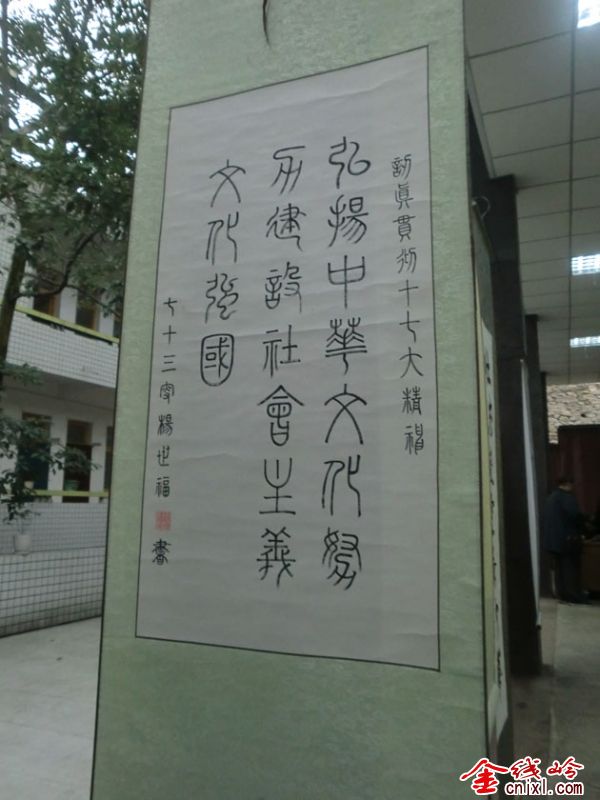 認真貫彻十七大精神
弘揚中華文化努
力建設社會主義
文化强國
七十三叟楊世福
書
金线岭
cnixl.com